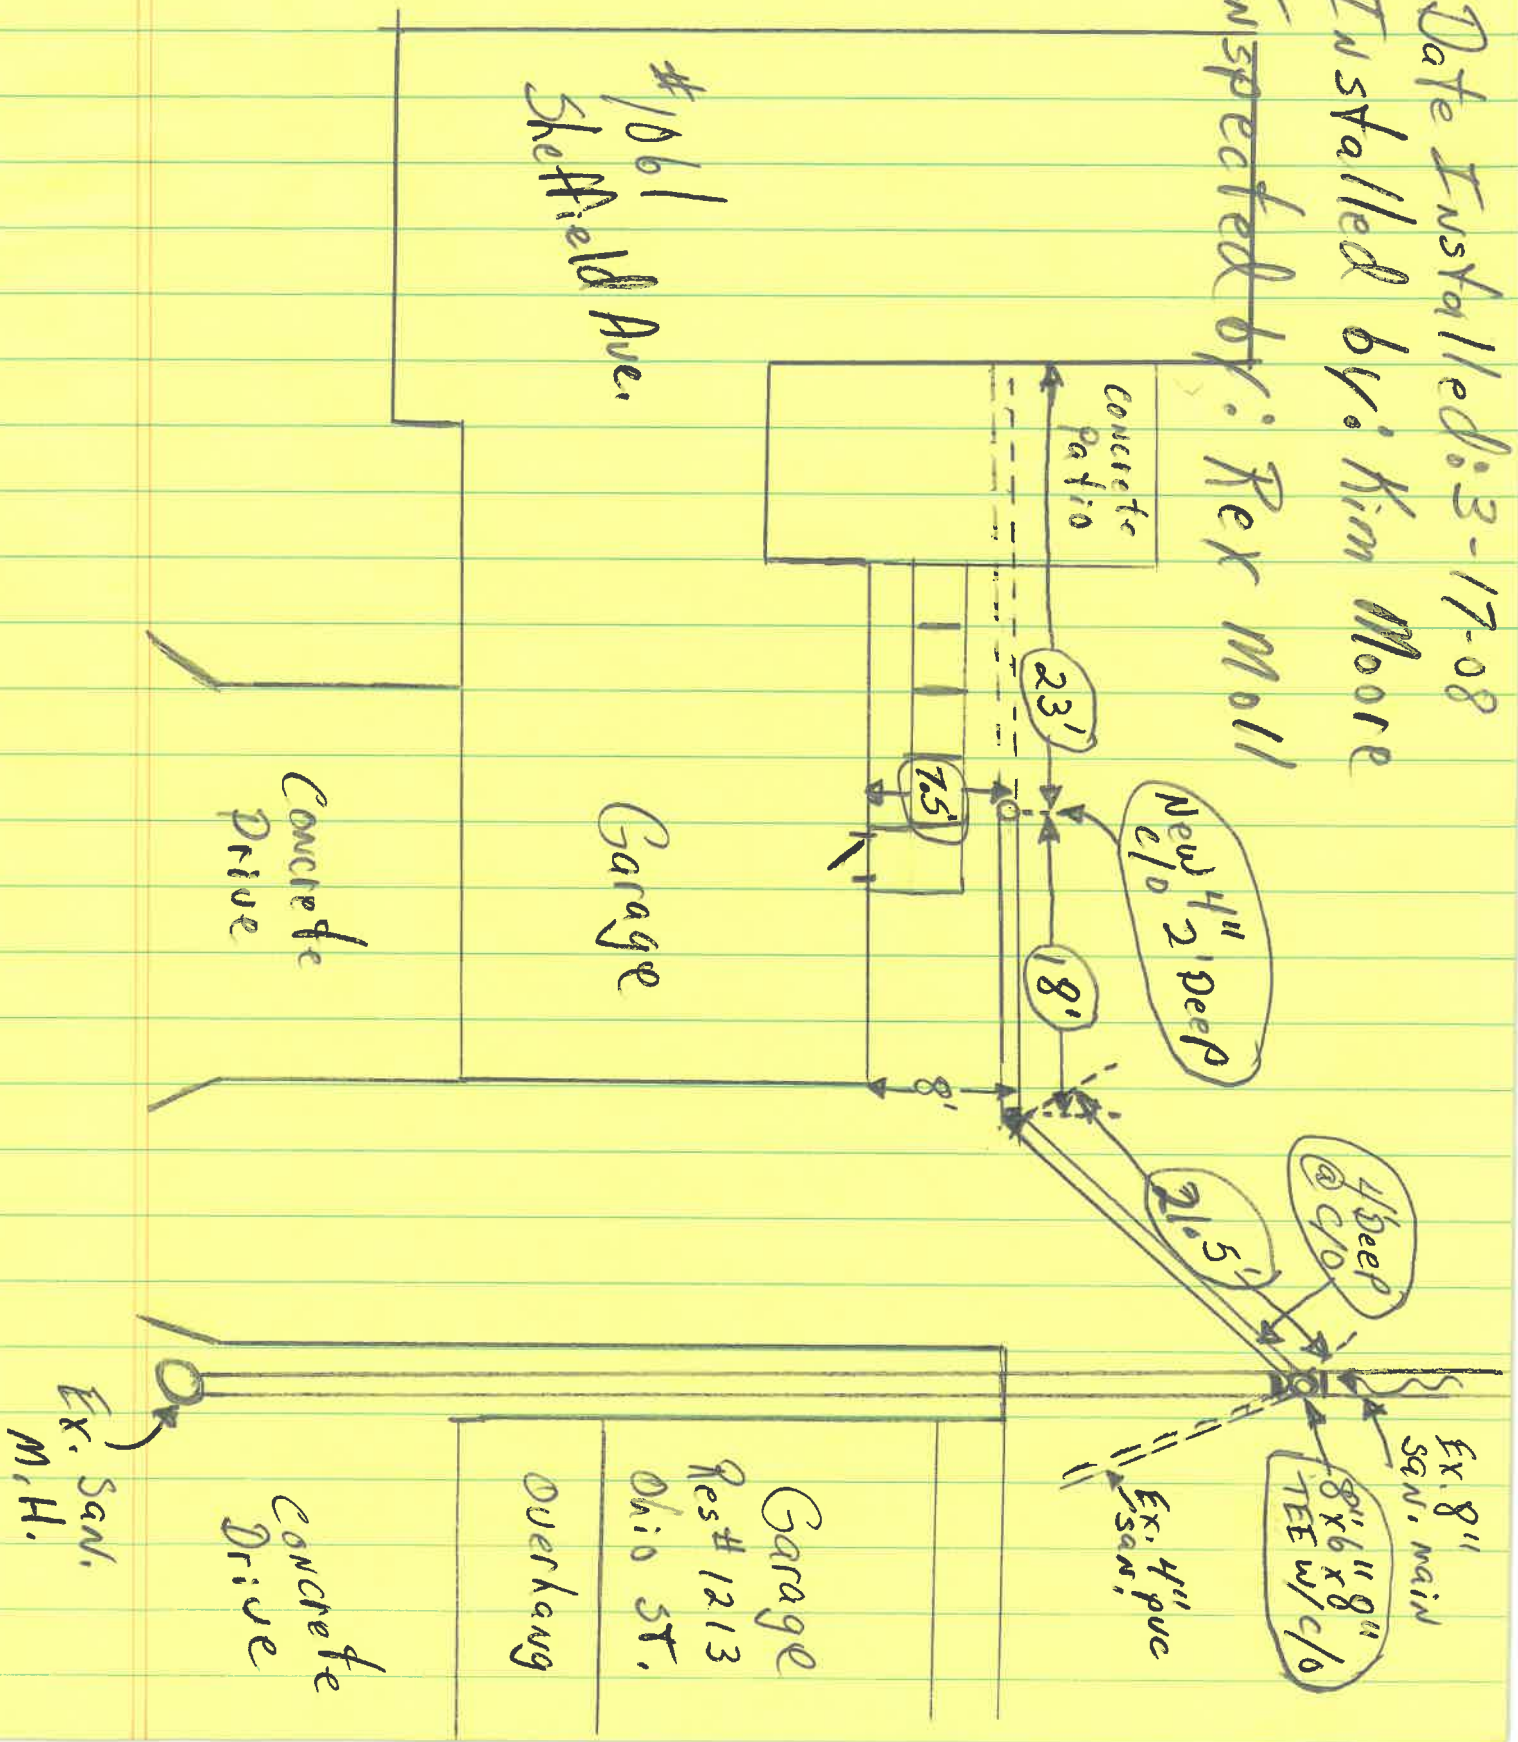 Date Installed: 3-17-08
Installed by: Kim Moore
Inspected by: Rex Moll
#1061
Sheffield Ave.
Concrete
Patio
23'
7.5'
New 4"
c/o 2' Deep
18'
8'
21.5'
4' Deep
@ C/O
Ex. 8"
San. main
8"x6"x8"
TEE w/ c/o
Ex. 4" pvc
san.
Garage
Concrete
Drive
Garage
Res# 1213
Ohio St.
Overhang
Concrete
Drive
Ex. San.
M.H.